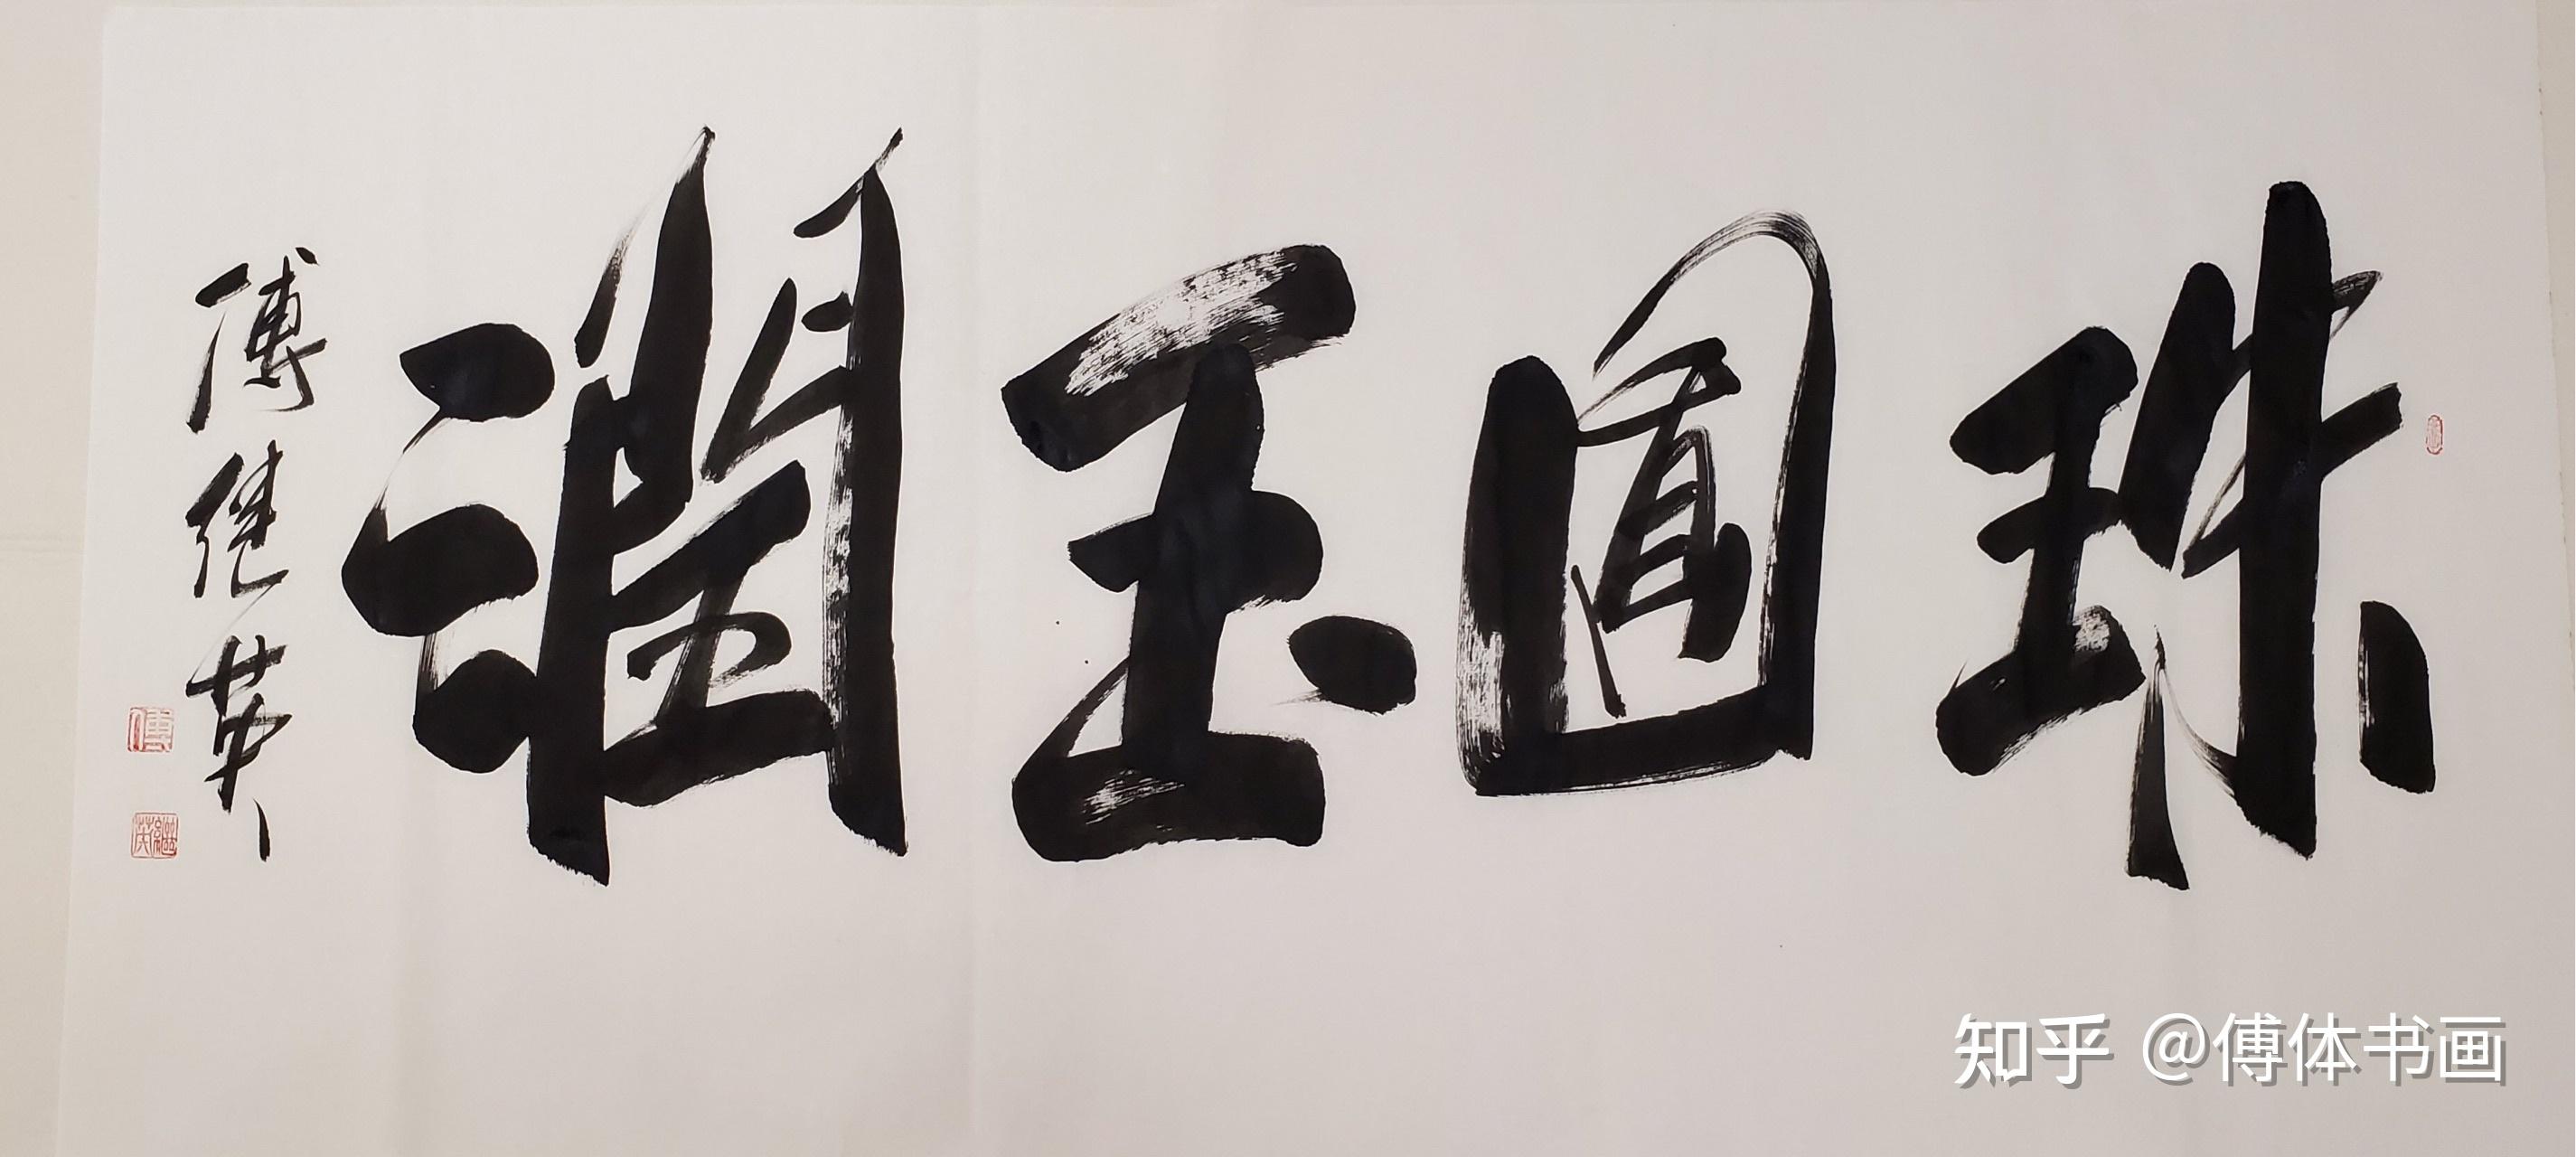 珠圓玉潤
傅继英
傅
繼英
知乎 @傅体书画